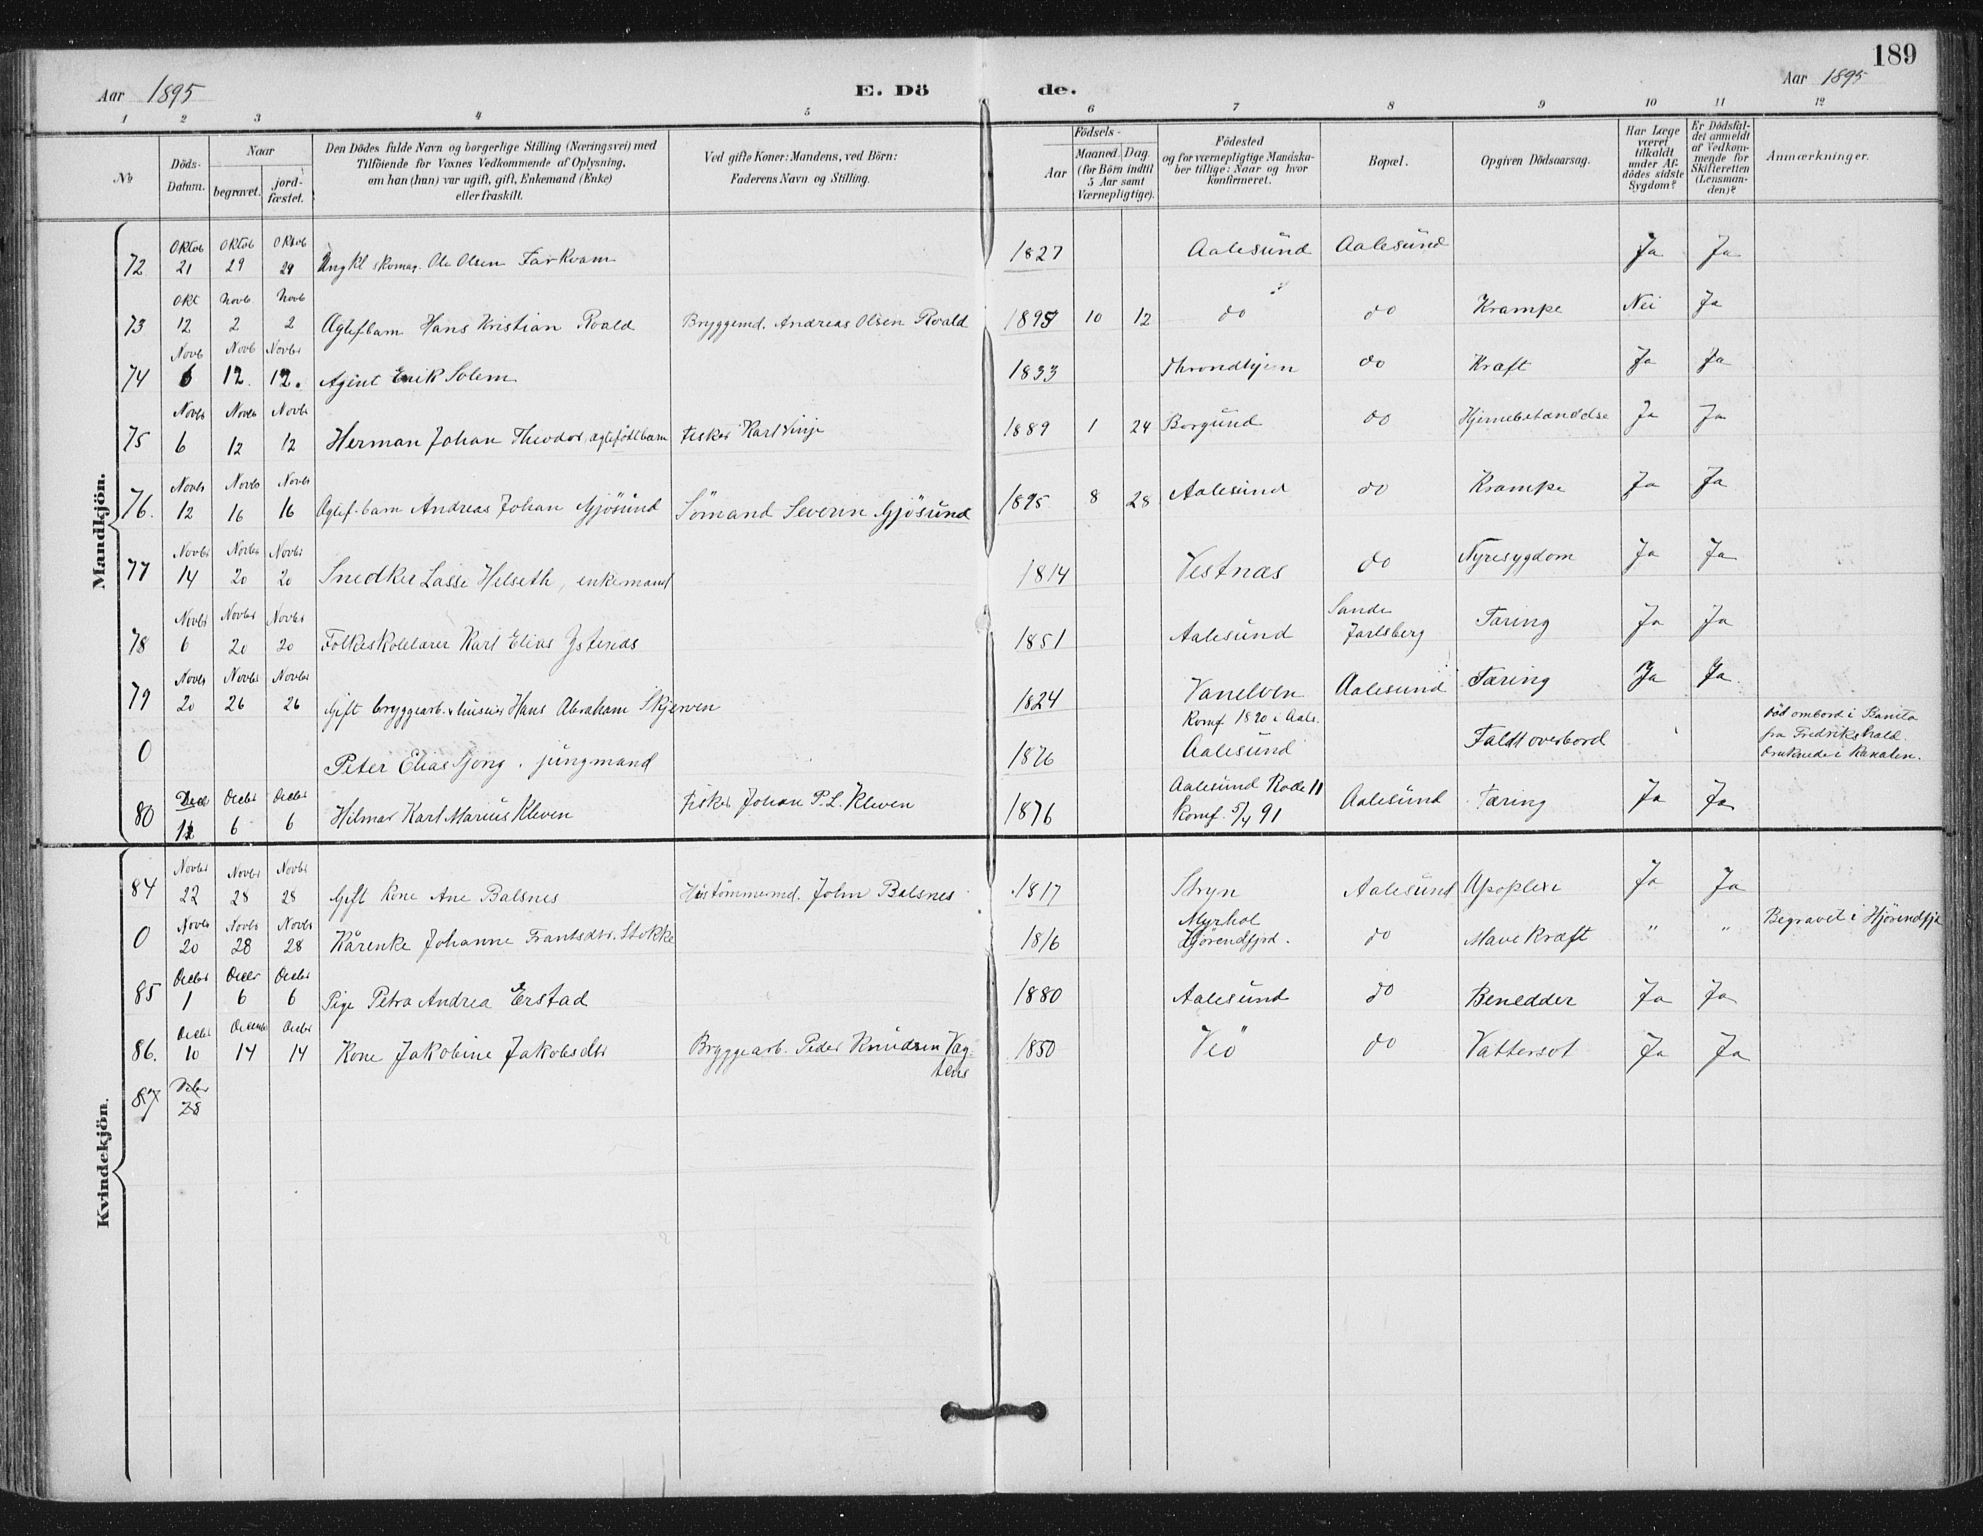 189
Aar 1895
E. Dö
de.
Aar 1895
1 2 3 4 5 6 7 8 9 10 11 12
No
Döds-Datum.
Naar
begravet.
jord-fæstet.
Den Dödes fulde Navn og borgerlige Stilling (Næringsvei) med
Tilföiende for Voxnes Vedkommende af Oplysning,
om han (hun) var ugift, gift, Enkemand (Enke)
eller fraskilt.
Ved gifte Koner: Mandens, ved Börn:
Faderens Navn og Stilling.
Födsels-
Aar
Maaned. Dag.
(for Börn indtil
5 Aar samt
Værnepligtige).
Födested
og for værnepligtige Mandska-
ber tillige: Naar og hvor
konfirmeret.
Bopæl.
Opgiven Dödsaarsag.
Har Læge
været
tilkaldt
under Af-
dödes sidste
Sygdom?
Er Dödsfal-
det anmeldt
af Vedkom-
mende for
Skifteretten
(Lensman-
den)?
Anmærkninger.
Mandkjön.
72 Oktob 21 Oktob 29 Oktob 29 Ungkl skomag. Ole Olsen Farkvam 1827 Aalesund Aalesund Ja Ja
73 Okt 12 Novb 2 Novb 2 Ægtef barn Hans Kristian Roald Bryggemd. Andreas Olsen Roald 1895 10 12 do do Krampe Nei Ja
74 Novb 6 Novb 12. Novbr 12. Agent Erik Solem 1833 Throndhjem do Kræft Ja Ja
75 Novbr 6 Novbr 12 Novbr 12 Herman Johan Theodor, ægtefødt barn Fisker Karl Vinje 1889 1 24 Borgund do Hjernebetændelse Ja Ja
76. Novbr 12 Novbr 16 Novbr 16 Ægtef. barn Andreas Johan Gjösund Sömand Severin Gjösund 1895 8 28 Aalesund do Krampe Ja Ja
77 Novbr 14 Novbr 20 Novbr 20 Snedker Lasse Helseth, enkemand 1814 Vestnæs do Nyresygdom Ja Ja
78 Novbr 6 Novbr 20 Novbr 20 Folkeskolelærer Karl Elias Ystenæs 1851 Aalesund Sande Jarlsberg Tæring Ja Ja
79 Novbr 20 Novbr 26 Novbr 26 Gift bryggearb. & huseier Hans Abraham Skjerven 1824 Vanelven Aalesund Tæring Ja Ja.
0 Peter Elias Sjong. jungmand 1876 Konf. 1890 i Aale. Aalesund Faldt overbord död ombord i
fra Fredrikshald.
druknede i Kanalen.
80 Decbr 12 Decbr 6 Decbr 6 Hilmar Karl Marius Kleven Fisker Johan P. L. Kleven 1876 Aalesund Rode 11 Konf. 5/4 91 Aalesund Tæring Ja Ja
Kvindekjön.
84 Novbr 22 Novbr 28 Novbr 28 Gift Kone Ane Balsnes Hustömmermd. John Balsnes 1817 Stryn Aalesund Apoplexi Ja Ja
0 Novbr 20 Novbr 28 Novbr 28 Kårenke Johanne Frantsdtr. Stokke 1816 Myrhol Hjörendfjrd. do Mave Kræft " " Begravet i Hjörendfj
85 Decbr 1 Decbr 6 Decbr 6 Pige Petra Andrea Erstad 1880 Aalesund do Benedder Ja Ja
86. Decbr 10 Decembr 14 Decbr 14 Kone Jakobine Jakobsdtr Bryggearb. Peder Knudsen Vag-
tens 1850 Veö do Vattersot Ja Ja
87 Decbr 28